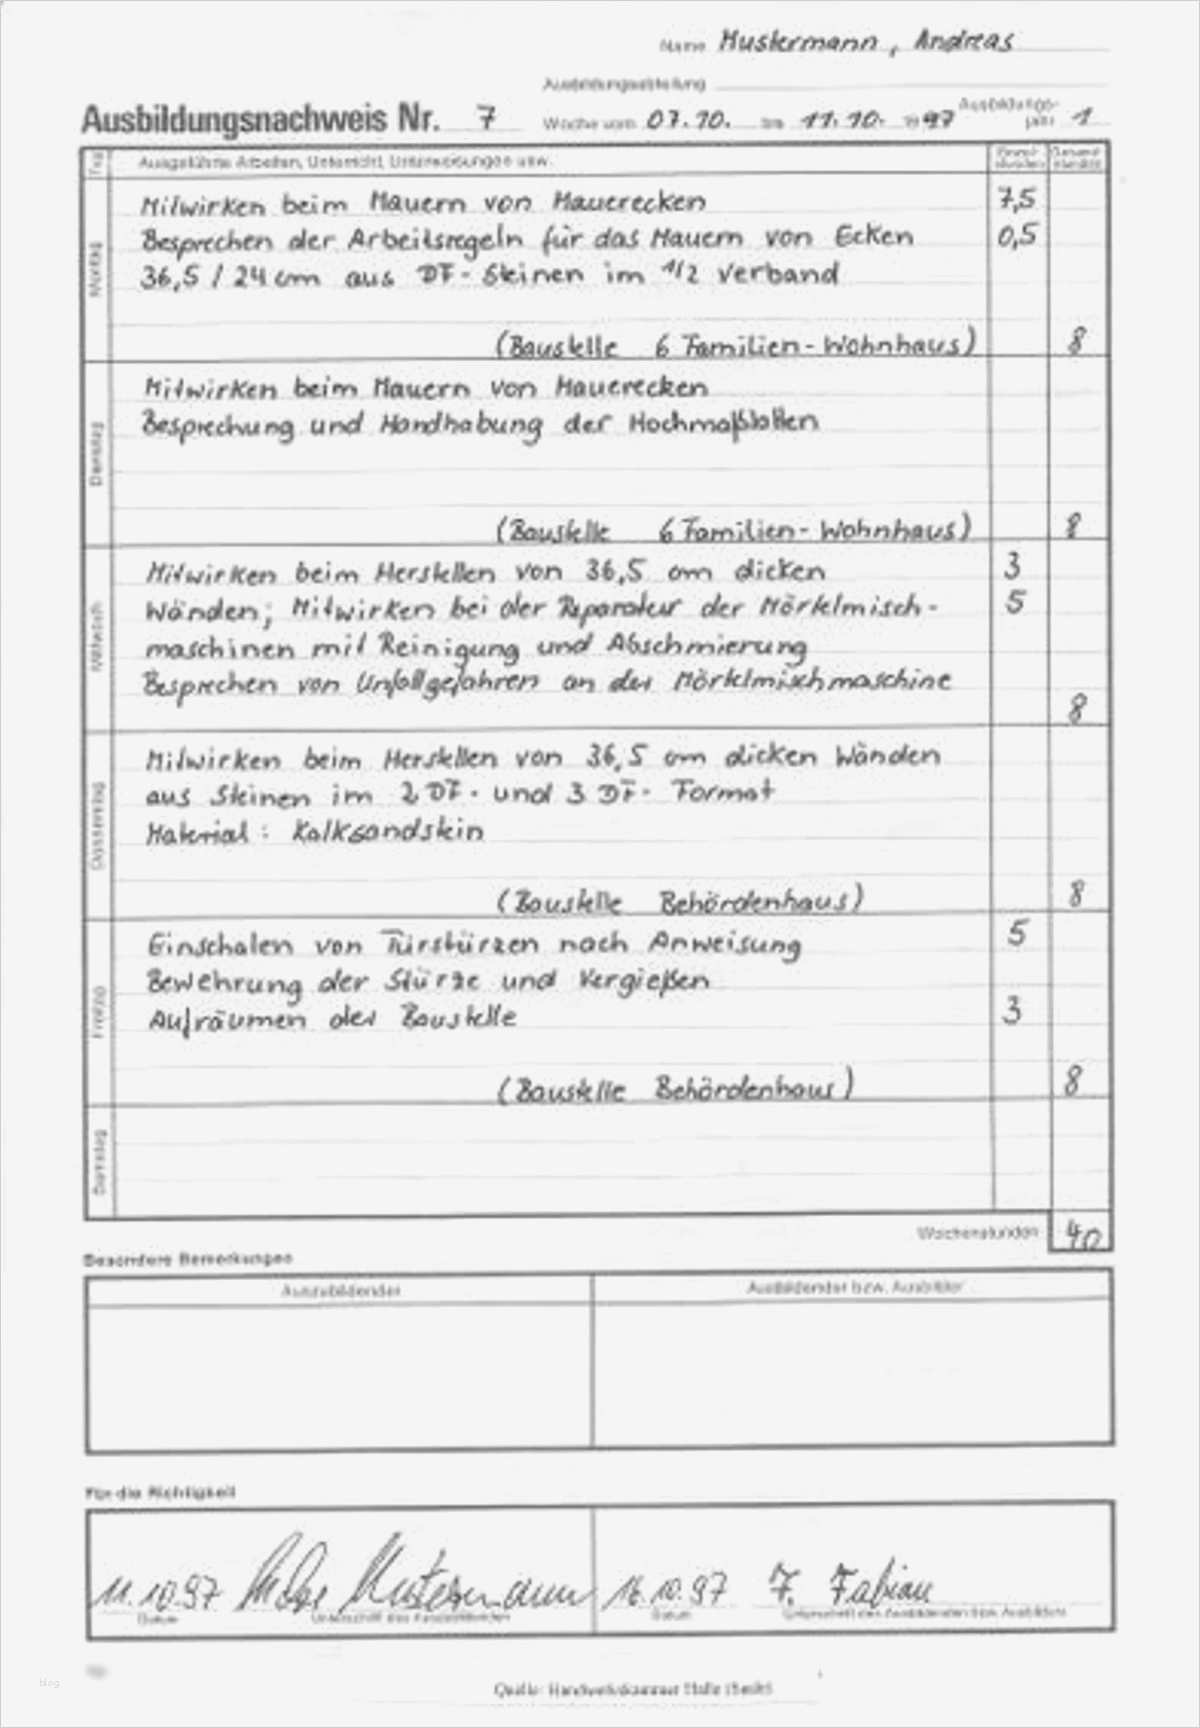 Name Mustermann, Andreas
Ausbildungsabteilung
Ausbildungsnachweis Nr. 7 Woche vom 07.10. bis 11.10. 1997 Ausbildungs-
jahr 1
Tag Ausgeführte Arbeiten, Unterricht, Unterweisungen usw. Einzel-stunden Gesamt-stunden
Montag
Mitwirken beim Mauern von Mauerecken 7,5
Besprechen der Arbeitsregeln für das Mauern von Ecken 0,5
36,5 / 24 cm aus DF- Steinen im 1/2 Verband
(Baustelle 6 Familien-Wohnhaus) 8
Dienstag
Mitwirken beim Mauern von Mauerecken
Besprechung und Handhabung der Hochmaßlatten
(Baustelle 6 Familien-Wohnhaus) 8
Mittwoch
Mitwirken beim Herstellen von 36,5 cm dicken 3
Wänden; Mitwirken bei der Reparatur der Mörtelmisch- 5
maschinen mit Reinigung und Abschmierung
Besprechen von Unfallgefahren an der Mörtelmischmaschine
8
Donnerstag
Mitwirken beim Herstellen von 36,5 cm dicken Wänden
aus Steinen im 2 DF- und 3 DF- Format
Material: Kalksandstein
(Baustelle Behördenhaus) 8
Freitag
Einschalen von Türstürzen nach Anweisung 5
Bewehrung der Stürze und Vergießen
Aufräumen der Baustelle 3
(Baustelle Behördenhaus) 8
Wochenstunden 40
Besondere Bemerkungen
Auszubildender Ausbildender bzw. Ausbilder
Für die Richtigkeit
11.10.97 Mustermann 16.10.97 F. Fabian
Datum Unterschrift des Auszubildenden Datum Unterschrift des Ausbildenden bzw. Ausbilders
Quelle: Handwerkskammer Halle (Saale)
blog